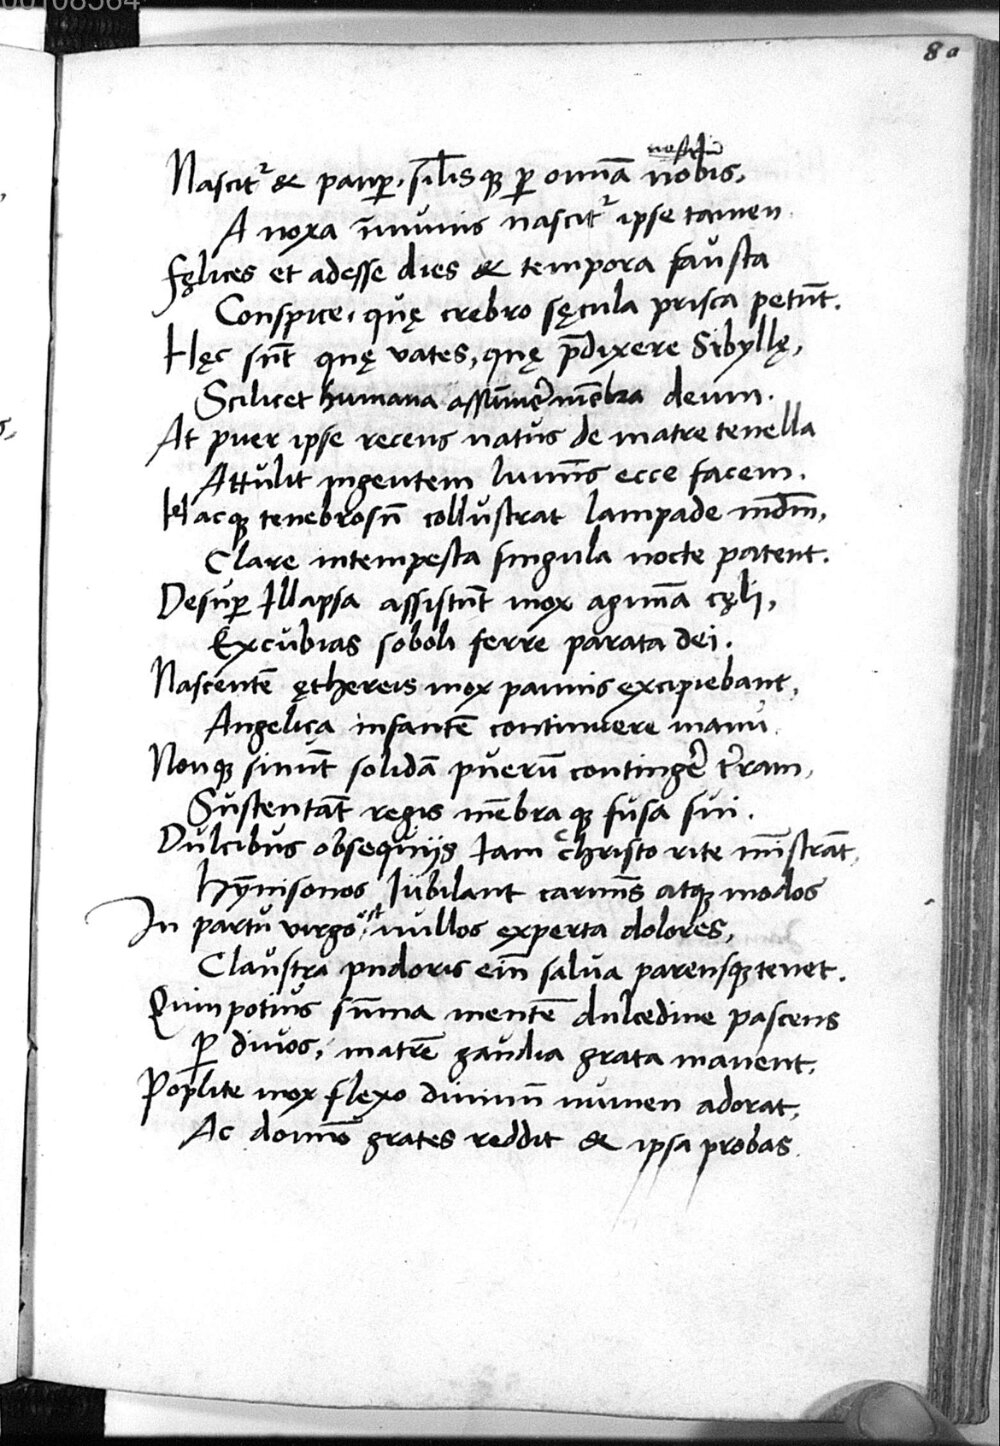 00108564
80
Nascit᷑ & paup̱, sil̄is q̨ ꝑ om̄ia nobis,
A noxa īmunis nascit᷑ ipse tamen
Fęlices et adesse dies & tempora faŭsta
Conspice, quę crebro sęcula prisca petūt.
Hęc sūt quę vates, quę p̄dixere Sibyllę,
Scilicet humana assūmer̄ mēbra deum.
At puer ipse recens natŭs de matre tenella
Attŭlit ingentem lumīs ecce facem.
Hacq̨ tenebrosū collŭstrat lampade mūdm̄,
Clare intempesta singula nocte patent.
Desuꝑ Illapsa assistūt mox agmīa cęli,
Excŭbias soboli ferre parata dei.
Nascentē ęthereis mox pannis excipiebant,
Angelica infantē continuere manŭ
Nonq̨ sinūt solidā pŭerū continger̄ t̄ram,
Sŭstentāt regis mēbra q̨ fŭsa sui.
Dŭlcibŭs obseqŭijs Iam christo rite mīstrāt,
hȳnisonos Iŭbilant carmīs atq̨ modos
In partŭ virgo est nŭllos experta dolores,
Claŭstra pudoris eīn salŭa parensq̨ tenet.
Quin potiŭs sūma mentē dulcedine pascens
ꝑ divos, matrē gaudia grata manent.
Poplite mox flexo diuinū numen adorat,
Ac domō grates reddit & ipsa probas